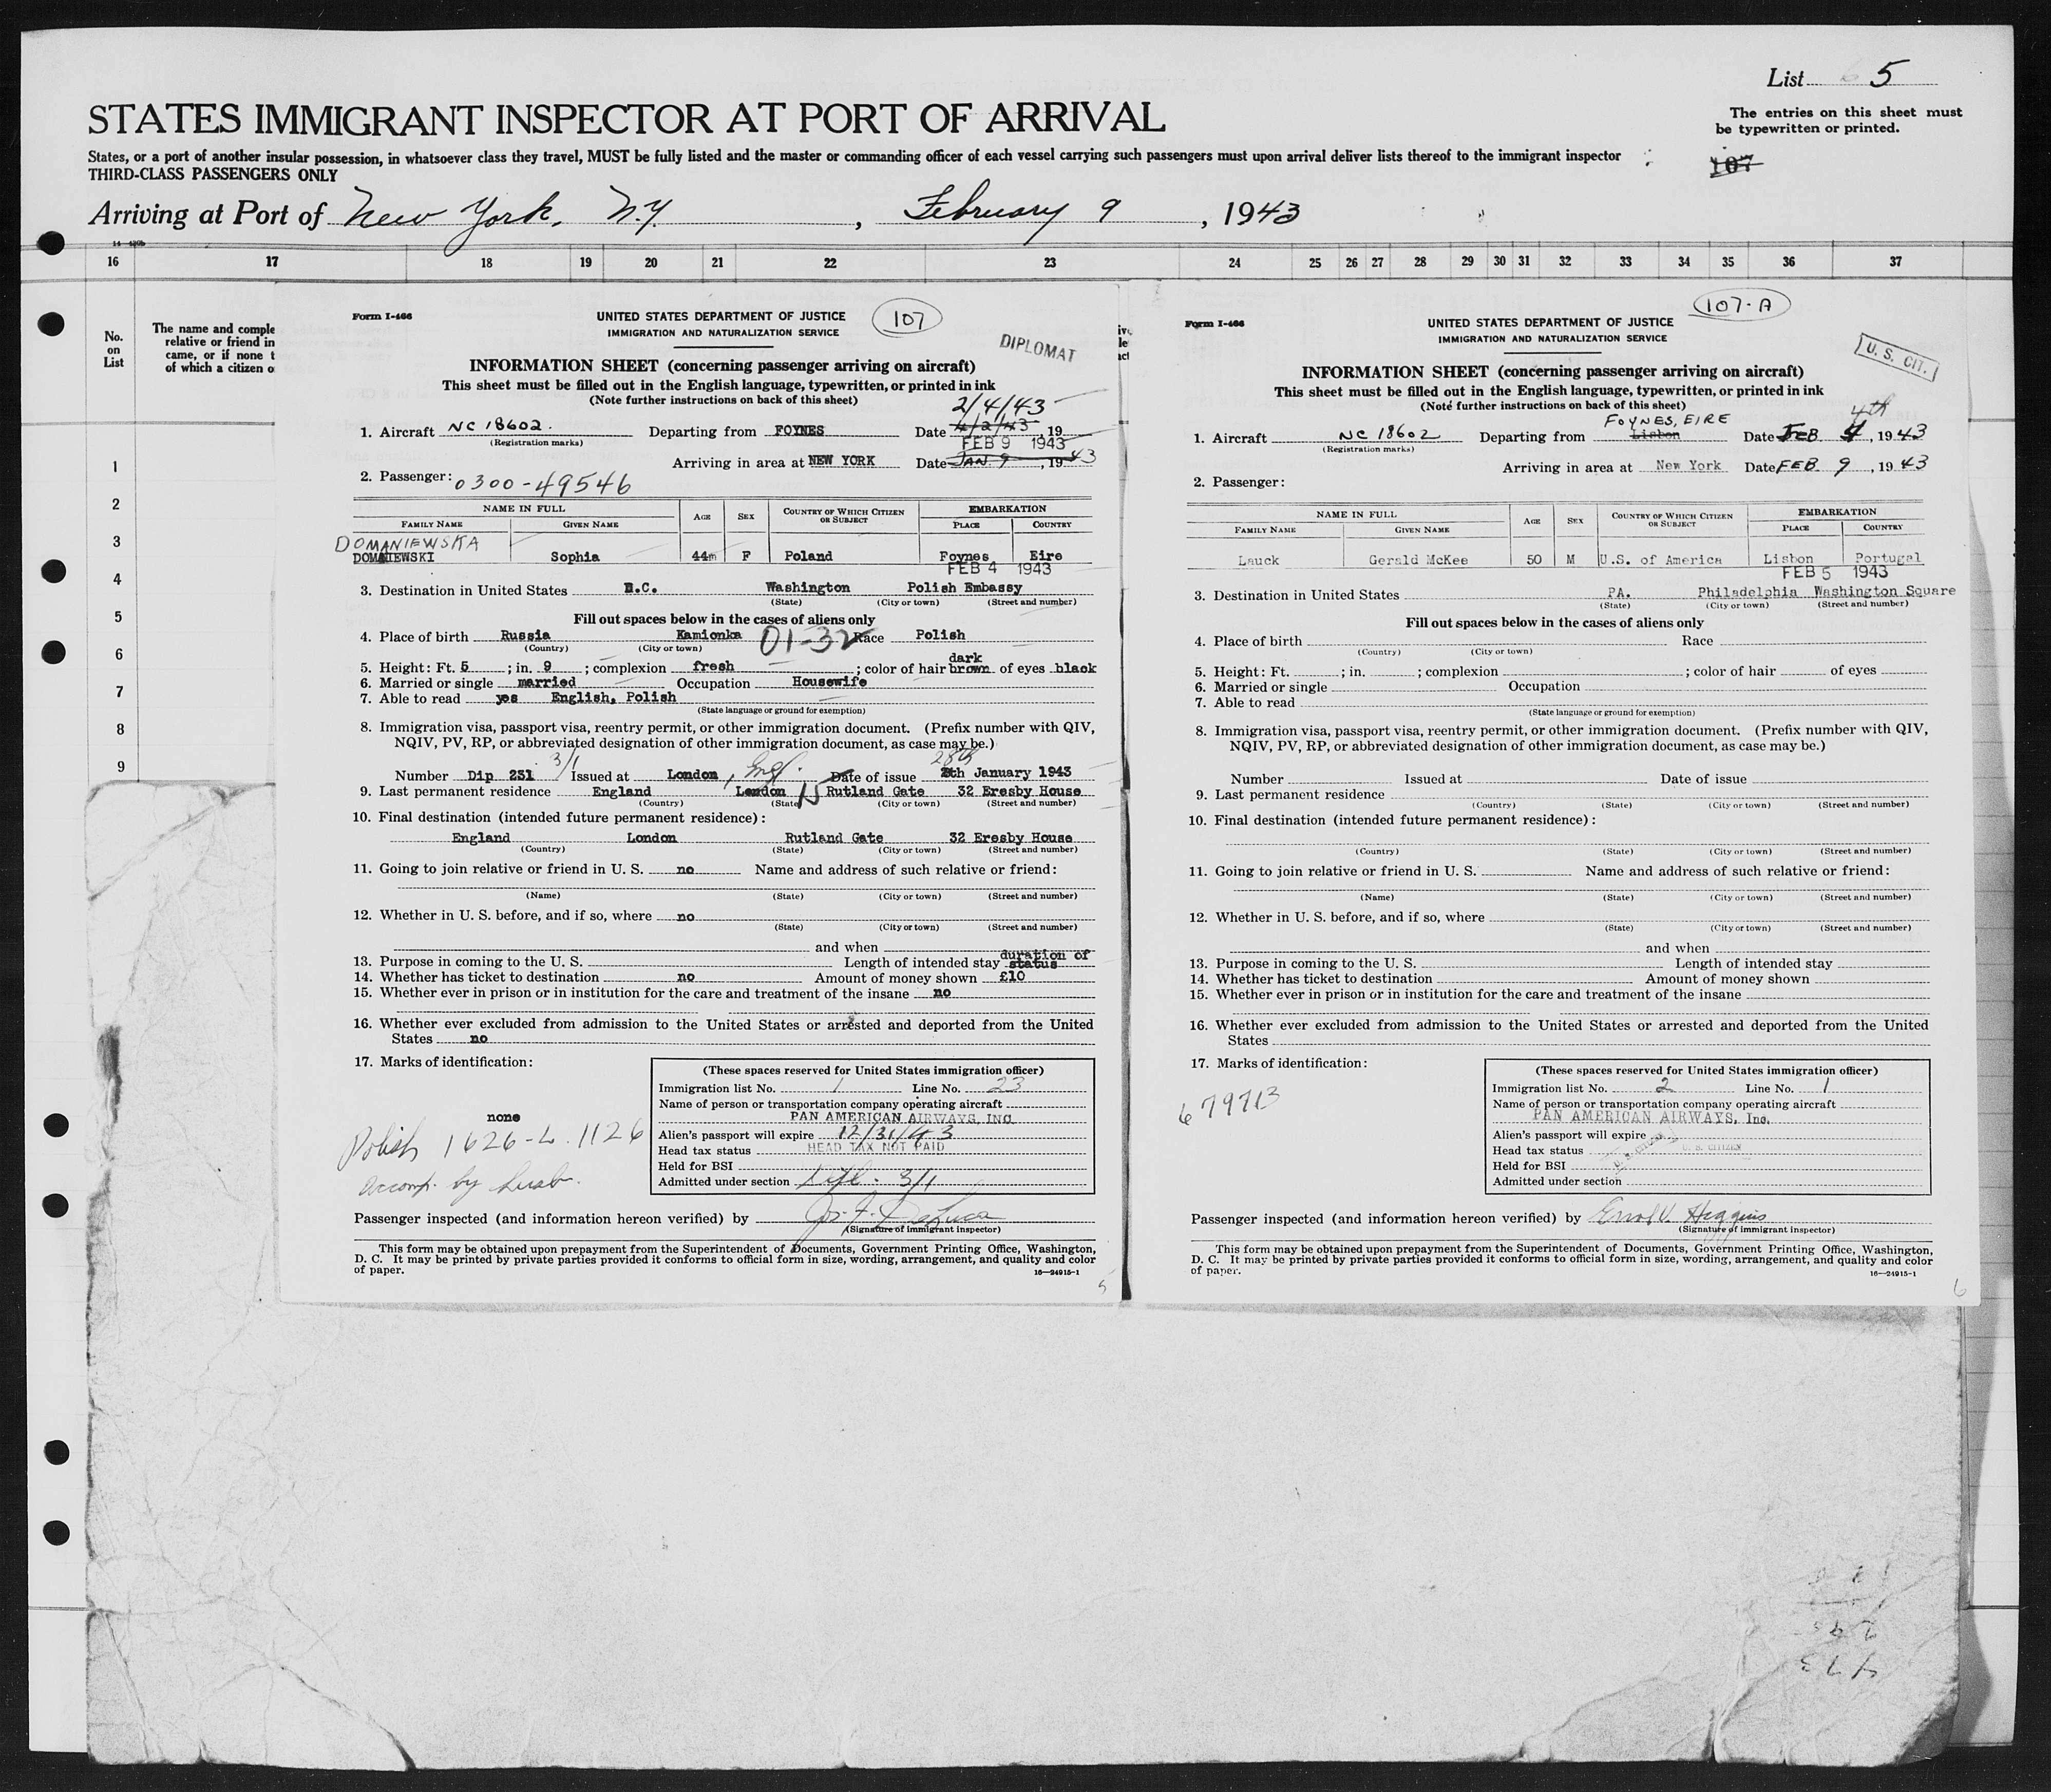 List 5
STATES IMMIGRANT INSPECTOR AT PORT OF ARRIVAL
The entries on this sheet must
be typewritten or printed.
States, or a port of another insular possession, in whatsoever class they travel, MUST be fully listed and the master or commanding officer of each vessel carrying such passengers must upon arrival deliver lists thereof to the immigrant inspector
THIRD-CLASS PASSENGERS ONLY
107
Arriving at Port of New York, N.Y. , February 9 , 1943
16 17 18 19 20 21 22 23 24 25 26 27 28 29 30 31 32 33 34 35 36 37
No.
on
List
The name and comple
relative or friend in
came, or if none t
of which a citizen o
1
2
3
4
5
6
7
8
9
Form I-466
UNITED STATES DEPARTMENT OF JUSTICE
107
IMMIGRATION AND NATURALIZATION SERVICE
DIPLOMAT
INFORMATION SHEET (concerning passenger arriving on aircraft)
This sheet must be filled out in the English language, typewritten, or printed in ink
(Note further instructions on back of this sheet)
2/4/43
1. Aircraft NC 18602. Departing from FOYNES Date 4/2/43, 19
(Registration marks)
FEB 9 1943
Arriving in area at NEW YORK Date JAN. 9 , 1943
2. Passenger: 0300-49546
NAME IN FULL
AGE SEX COUNTRY OF WHICH CITIZEN OR SUBJECT
EMBARKATION
FAMILY NAME GIVEN NAME PLACE COUNTRY
DOMANIEWSKA
DOMANIEWSKI Sophia 44m F Poland Foynes Eire
FEB 4 1943
3. Destination in United States D.C. Washington Polish Embassy
(State) (City or town) (Street and number)
Fill out spaces below in the cases of aliens only
4. Place of birth Russia Kamionka 01-32 Race Polish
(Country) (City or town)
dark
5. Height: Ft. 5 ; in. 9 ; complexion fresh ; color of hair brown of eyes black
6. Married or single married Occupation Housewife
7. Able to read yes English, Polish
(State language or ground for exemption)
8. Immigration visa, passport visa, reentry permit, or other immigration document. (Prefix number with QIV,
NQIV, PV, RP, or abbreviated designation of other immigration document, as case may be.)
3/1 28th
Number Dip 231 Issued at London, Engl. Date of issue January 1943
9. Last permanent residence England London Rutland Gate 32 Eresby House
(Country) (State) (City or town) (Street and number)
10. Final destination (intended future permanent residence):
England London Rutland Gate 32 Eresby House
(Country) (State) (City or town) (Street and number)
11. Going to join relative or friend in U. S. no Name and address of such relative or friend:
(Name) (State) (City or town) (Street and number)
12. Whether in U. S. before, and if so, where no
(State) (City or town) (Street and number)
and when
duration of
13. Purpose in coming to the U. S. Length of intended stay status
14. Whether has ticket to destination no Amount of money shown £10
15. Whether ever in prison or in institution for the care and treatment of the insane no
16. Whether ever excluded from admission to the United States or arrested and deported from the United
States no
17. Marks of identification:
none
Polish 1626-L.1126
accomp. by husb.
(These spaces reserved for United States immigration officer)
Immigration list No. 1 Line No. 23
Name of person or transportation company operating aircraft
PAN AMERICAN AIRWAYS, INC
Alien's passport will expire 12/31/43
Head tax status HEAD TAX NOT PAID
Held for BSI
Admitted under section 3/1
Passenger inspected (and information hereon verified) by
(Signature of immigrant inspector)
This form may be obtained upon prepayment from the Superintendent of Documents, Government Printing Office, Washington,
D. C. It may be printed by private parties provided it conforms to official form in size, wording, arrangement, and quality and color
of paper.
16—24915-1
5
Form I-466
UNITED STATES DEPARTMENT OF JUSTICE
107-A
IMMIGRATION AND NATURALIZATION SERVICE
U. S. CIT.
INFORMATION SHEET (concerning passenger arriving on aircraft)
This sheet must be filled out in the English language, typewritten, or printed in ink
(Note further instructions on back of this sheet)
FOYNES, EIRE 4th
1. Aircraft NC 18602 Departing from Lisbon Date FEB 4, 1943
(Registration marks)
Arriving in area at New York Date FEB 9 , 1943
2. Passenger:
NAME IN FULL
AGE SEX COUNTRY OF WHICH CITIZEN OR SUBJECT
EMBARKATION
FAMILY NAME GIVEN NAME PLACE COUNTRY
Lauck Gerald McKee 50 M U.S. of America Lisbon Portugal
FEB 5 1943
3. Destination in United States PA. Philadelphia Washington Square
(State) (City or town) (Street and number)
Fill out spaces below in the cases of aliens only
4. Place of birth Race
(Country) (City or town)
5. Height: Ft. ; in. ; complexion ; color of hair of eyes
6. Married or single Occupation
7. Able to read
(State language or ground for exemption)
8. Immigration visa, passport visa, reentry permit, or other immigration document. (Prefix number with QIV,
NQIV, PV, RP, or abbreviated designation of other immigration document, as case may be.)
Number Issued at Date of issue
9. Last permanent residence
(Country) (State) (City or town) (Street and number)
10. Final destination (intended future permanent residence):
(Country) (State) (City or town) (Street and number)
11. Going to join relative or friend in U. S. Name and address of such relative or friend:
(Name) (State) (City or town) (Street and number)
12. Whether in U. S. before, and if so, where
(State) (City or town) (Street and number)
and when
13. Purpose in coming to the U. S. Length of intended stay
14. Whether has ticket to destination Amount of money shown
15. Whether ever in prison or in institution for the care and treatment of the insane
16. Whether ever excluded from admission to the United States or arrested and deported from the United
States
17. Marks of identification:
679713
(These spaces reserved for United States immigration officer)
Immigration list No. 2 Line No. 1
Name of person or transportation company operating aircraft
PAN AMERICAN AIRWAYS, Inc.
Alien's passport will expire
Head tax status U. S. CITIZEN
Held for BSI
Admitted under section
Passenger inspected (and information hereon verified) by Errol V. Higgins
(Signature of immigrant inspector)
This form may be obtained upon prepayment from the Superintendent of Documents, Government Printing Office, Washington,
D. C. It may be printed by private parties provided it conforms to official form in size, wording, arrangement, and quality and color
of paper.
16—24915-1
6